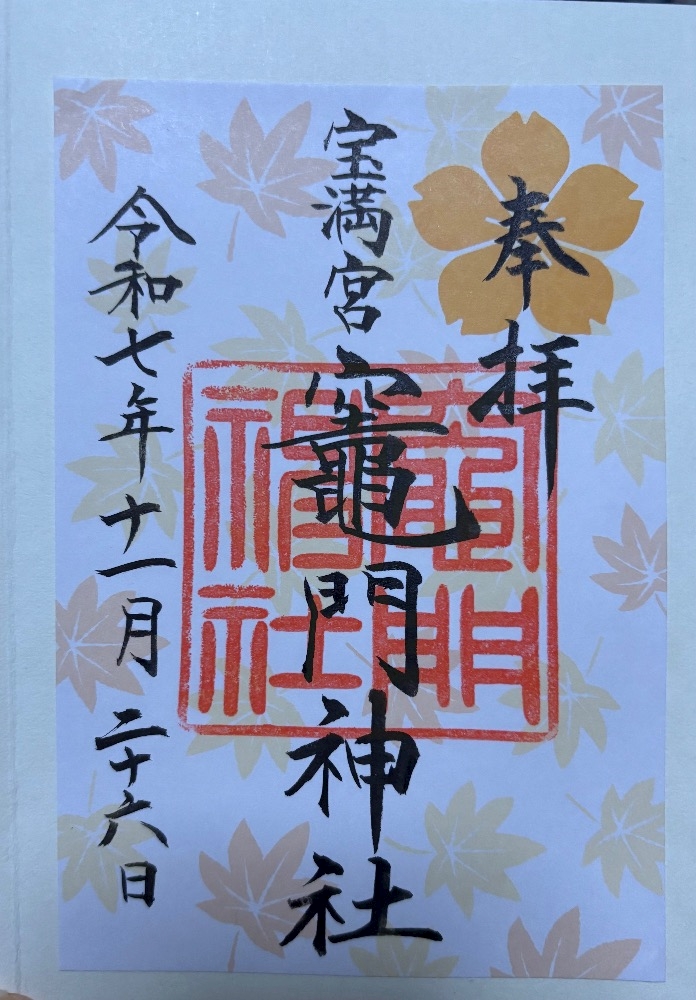 奉拝
宝満宮
竈門神社
竈門神社
令和七年十一月二十六日